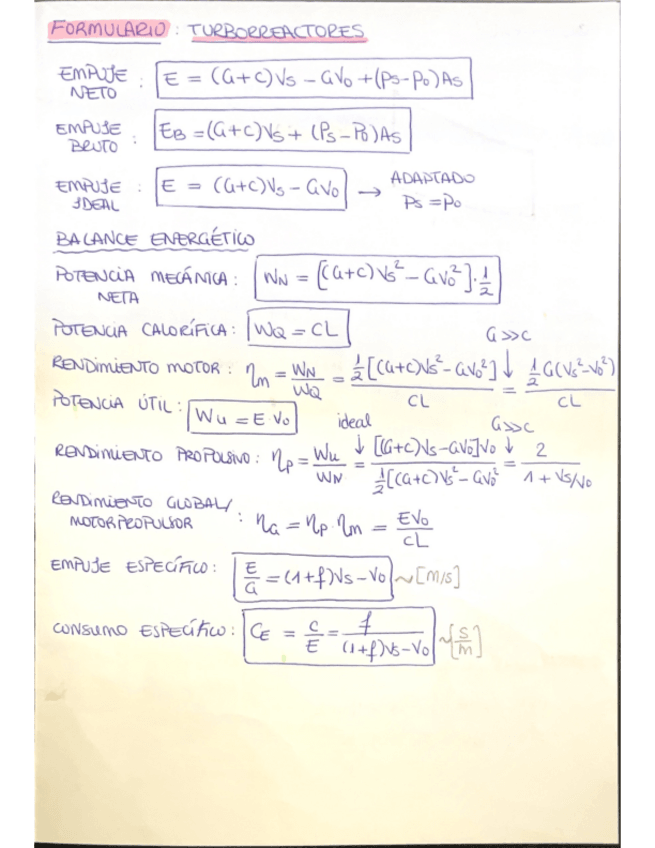 FORMULARIO : TURBORREACTORES
EMPUJE NETO : E = (G+c)Vs - GV0 + (Ps-P0)As
EMPUJE BRUTO : EB = (G+c)Vs + (Ps-P0)As
EMPUJE IDEAL : E = (G+c)Vs - GV0 → ADAPTADO Ps = P0
BALANCE ENERGÉTICO
POTENCIA MECÁNICA NETA : WN = [(G+c)Vs² - GV0²]·1/2
POTENCIA CALORÍFICA: WQ = CL
G>>c
RENDIMIENTO MOTOR : ηm = WN/WQ = 1/2[(G+c)Vs²-GV0²]/CL ↓= 1/2 G(Vs²-V0²)/CL
POTENCIA ÚTIL: Wu = E V0
ideal G>>c
RENDIMIENTO PROPULSIVO: ηp = Wu/WN ↓= [(G+c)Vs-GV0]V0 / 1/2[(G+c)Vs²-GV0²] ↓= 2/(1+Vs/V0)
RENDIMIENTO GLOBAL/
MOTOPROPULSOR : ηG = ηp·ηm = EV0/CL
EMPUJE ESPECÍFICO: E/G = (1+f)Vs-V0 ~[m/s]
CONSUMO ESPECÍFICO: CE = c/E = f/((1+f)Vs-V0) ~[s/m]